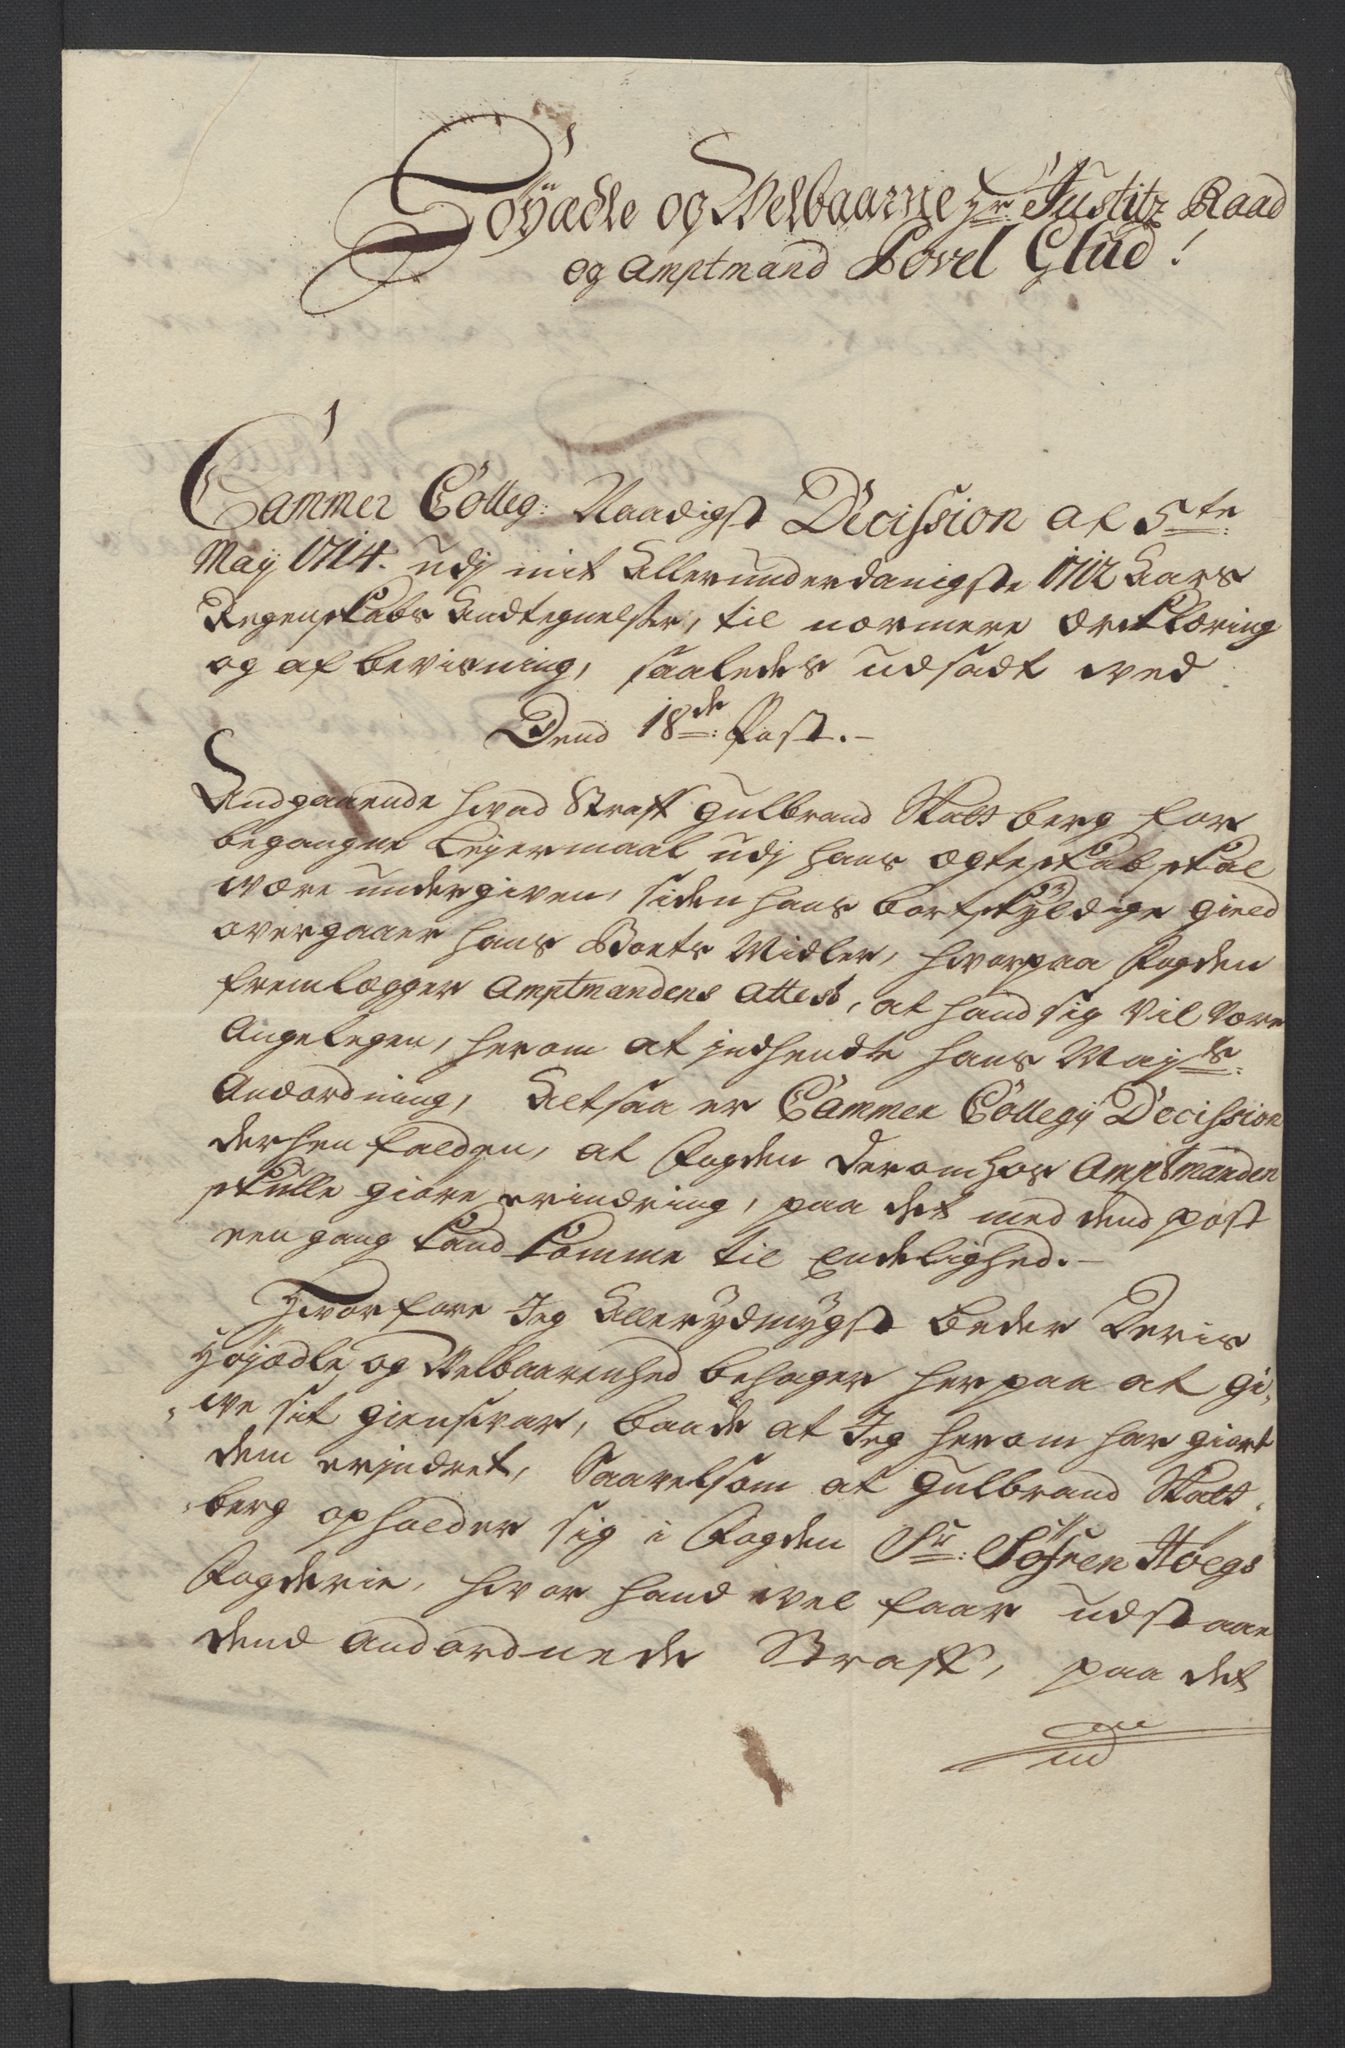 Höyædle og Welbaarne Hr Justitz Raad
og Amptmand Povel Glud!
Cammer Colleg: Naadigst Decission af 5te
May 1714. udj mit Allerunderdanigste 1712 Aars
Regenskabs Andtegnelser, til nærmere ærklæring
og afbeviisning, saaledes udsadt ved
Dend 18de Post.-
Andgaaende hvad Straff Gulbrand Skattberg for
begangne Leyermaal udj hans ægteskab skal
være undergiven, siden hans bortskyldige gield
overgaaer hans Boets Midler, hvorpaa Fogden
fremlægger Amptmandens Attest, at hand sig vil være
Angelegen, herom at indhendte hans Mayts:
Anordning, Altsaa er Cammer Collegij Decission
derhen falden, at Fogden derom hos Amptmanden
skulle giøre erindring, paa det med dend post
een gang kand komme til Endelighed.-
Hvorfore Jeg Allerydmygst beder Deris
Höyædle og Welbaarenhed behager herpaa at gi-
ve sit giensvar, baade at Jeg herom har giort
dem erindret, Saavelsom at Gulbrand Skatt-
berg opholder sig i Fogden Sr: Söfren Höegs
Fogderie, hvor hand vel faar udstaae
dend anordnede Straff, paa det